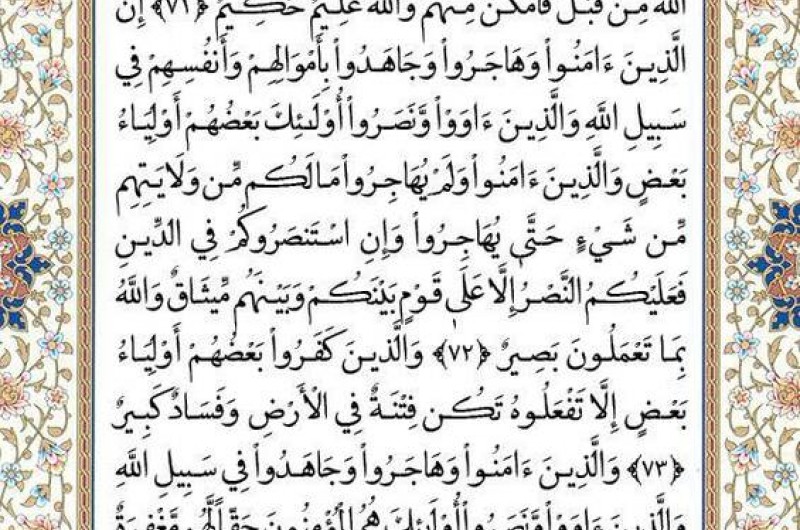 اللَّهَ مِن قَبْلُ فَأَمْكَنَ مِنْهُمْ وَاللَّهُ عَلِيمٌ حَكِيمٌ ﴿٧١﴾ إِنَّ
الَّذِينَ ءَامَنُواْ وَهَاجَرُواْ وَجَاهَدُواْ بِأَمْوَالِهِمْ وَأَنفُسِهِمْ فِي
سَبِيلِ اللَّهِ وَالَّذِينَ ءَاوَواْ وَّنَصَرُواْ أُوْلَـٰئِكَ بَعْضُهُمْ أَوْلِيَاءُ
بَعْضٍ وَالَّذِينَ ءَامَنُواْ وَلَمْ يُهَاجِرُواْ مَا لَكُم مِّن وَلَايَتِهِم
مِّن شَيْءٍ حَتَّى يُهَاجِرُواْ وَإِنِ اسْتَنصَرُوكُمْ فِي الدِّينِ
فَعَلَيْكُمُ النَّصْرُ إِلَّا عَلَىٰ قَوْمٍ بَيْنَكُمْ وَبَيْنَهُم مِّيثَاقٌ وَاللَّهُ
بِمَا تَعْمَلُونَ بَصِيرٌ ﴿٧٢﴾ وَالَّذِينَ كَفَرُواْ بَعْضُهُمْ أَوْلِيَاءُ
بَعْضٍ إِلَّا تَفْعَلُوهُ تَكُن فِتْنَةٌ فِي الْأَرْضِ وَفَسَادٌ كَبِيرٌ
﴿٧٣﴾ وَالَّذِينَ ءَامَنُواْ وَهَاجَرُواْ وَجَاهَدُواْ فِي سَبِيلِ اللَّهِ
وَالَّذِينَ ءَاوَواْ وَّنَصَرُواْ أُوْلَـٰئِكَ هُمُ الْمُؤْمِنُونَ حَقًّا لَّهُم مَّغْفِرَةٌ